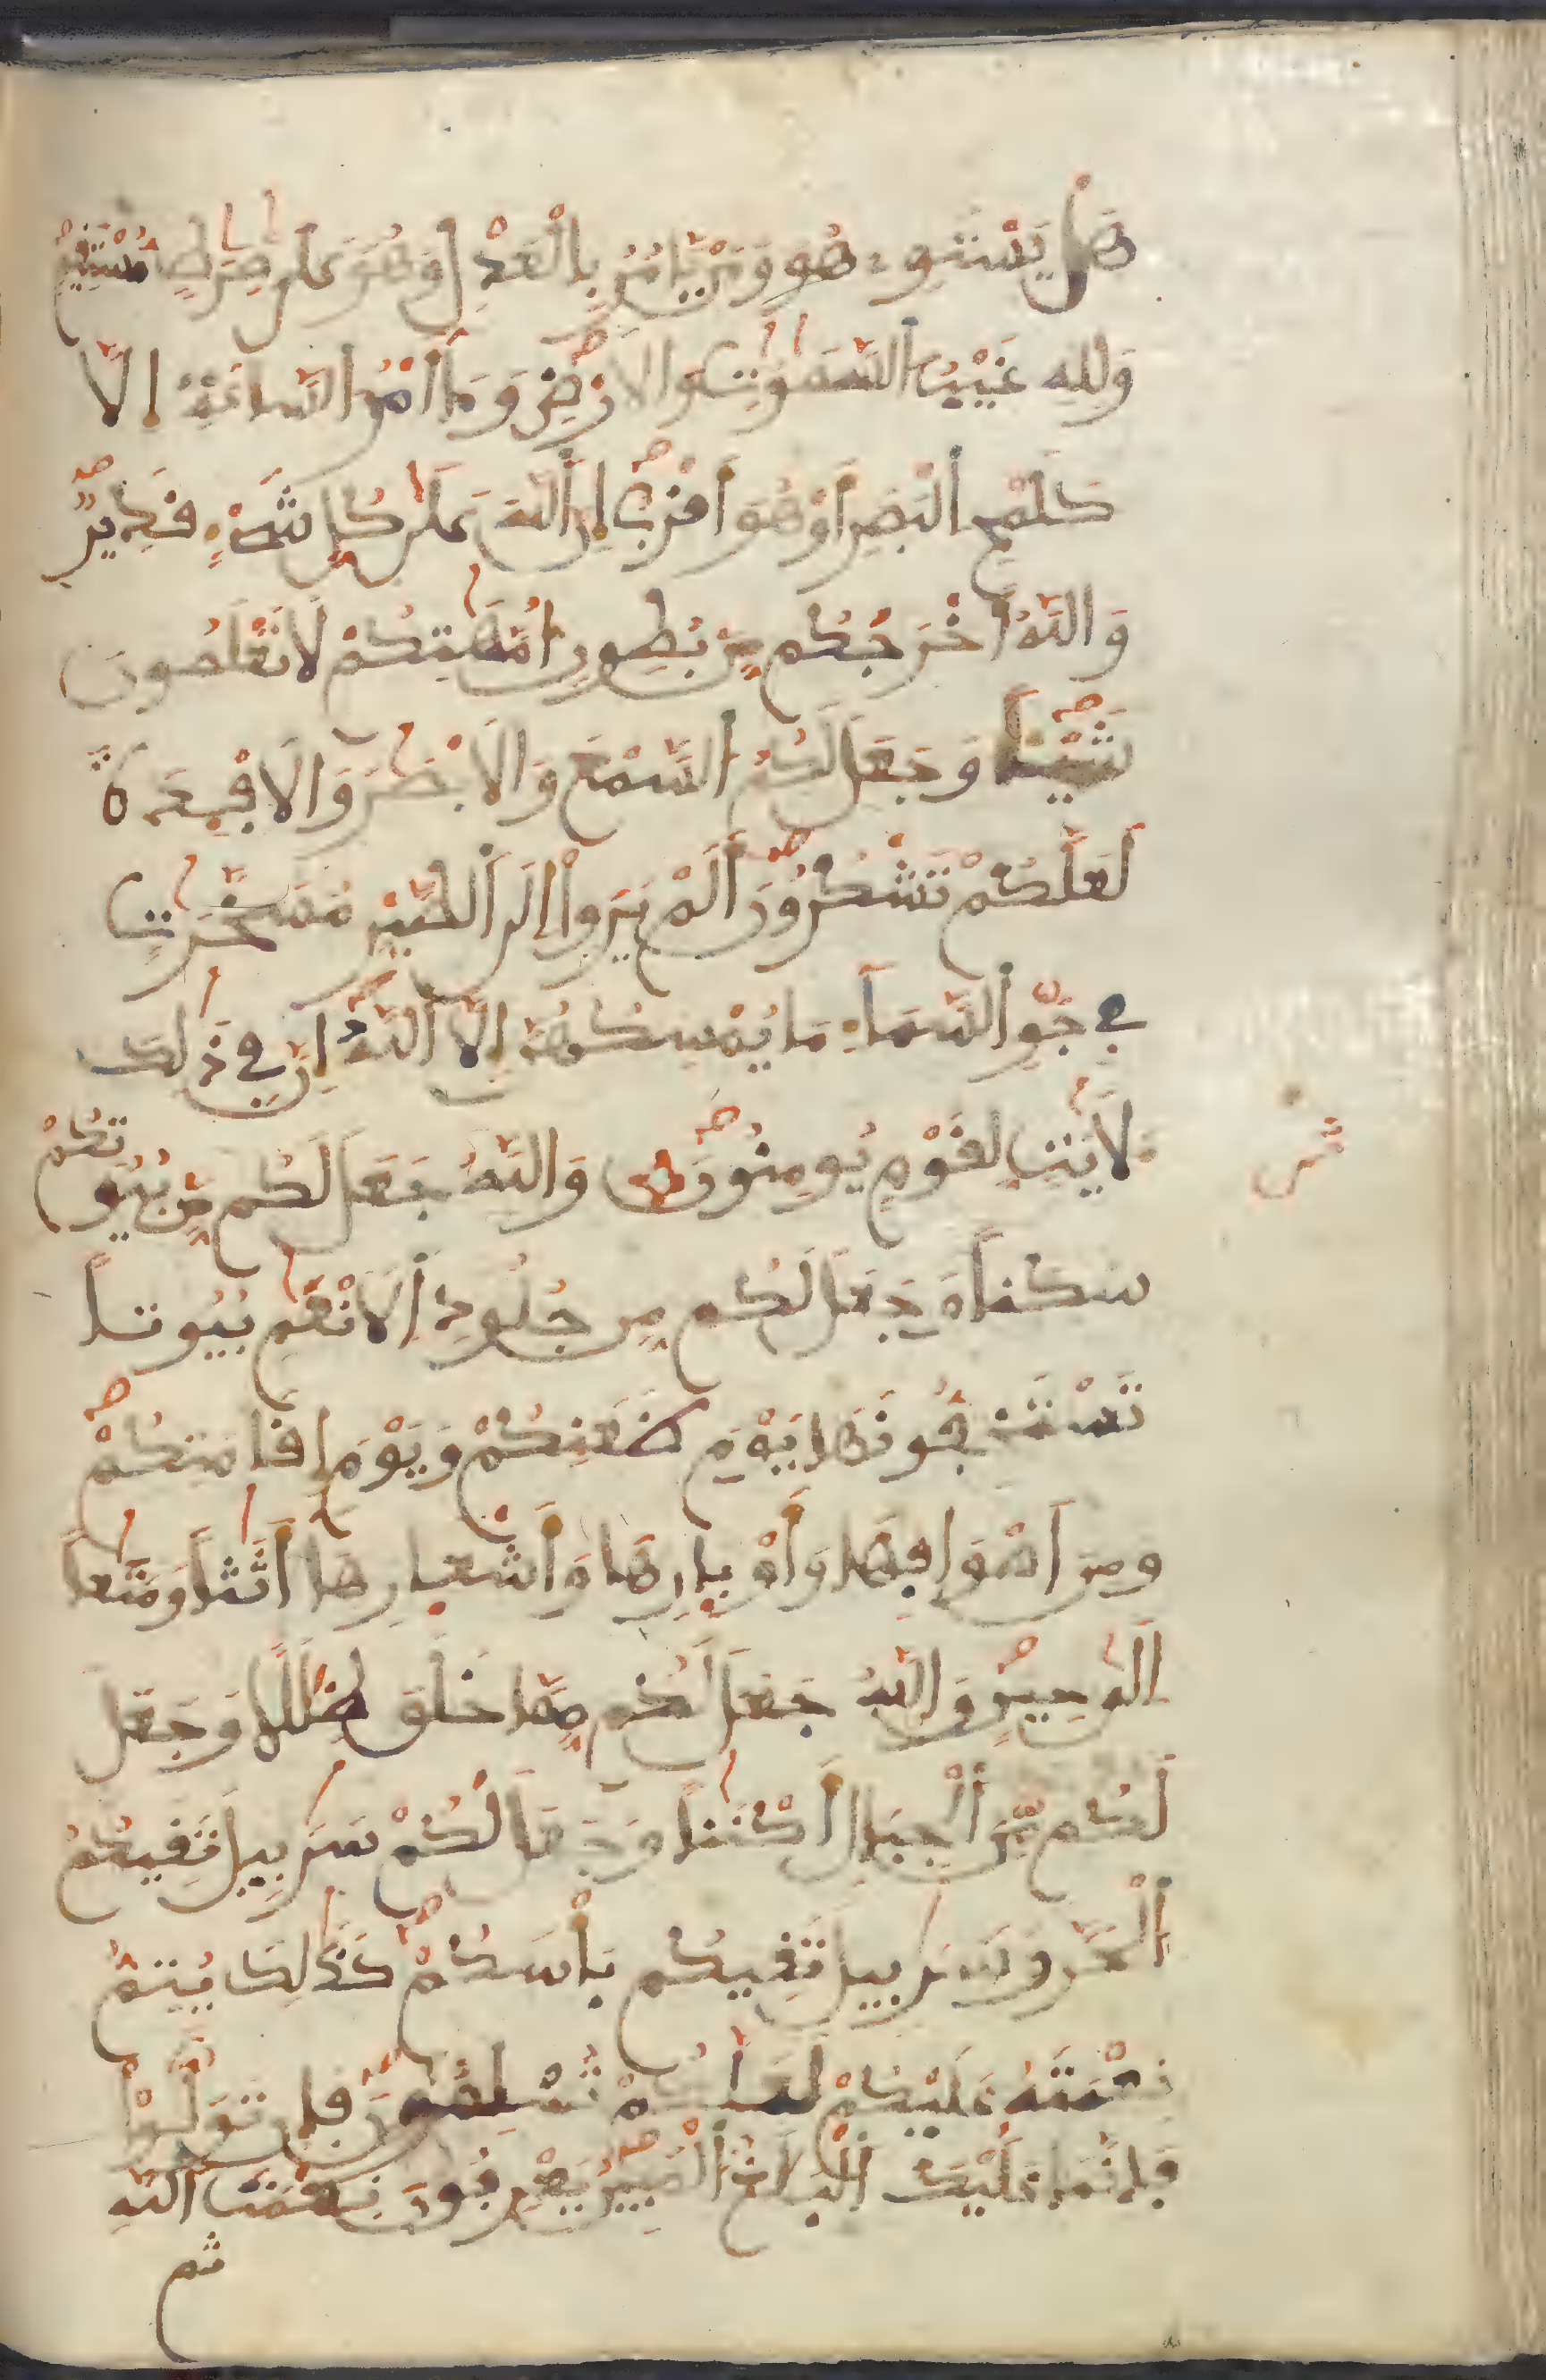 هَلْ يَسْتَوِے هُوَ وَمَنْ يَّامُرُ بِالْعَدْلِ وَهُوَ عَلَىٰ صِرَٰطٍ مُّسْتَقِيمٍ
وَلِلهِ غَيْبُ السَّمَٰوَٰتِ وَالَارْضِ وَمَا أَمْرُ السَّاعَةِ إِلَّا
كَلَمْحِ الْبَصَرِ أَوْ هُوَ أَقْرَبُ إِنَّ اللَّهَ عَلَىٰ كُلِّ شَےْءٍ قَدِيرٌ
وَاللَّهُ أَخْرَجَكُم مِّنۢ بُطُونِ أُمَّهَٰتِكُمْ لَا تَعْلَمُونَ
شَيْـًٔا وَجَعَلَ لَكُمُ السَّمْعَ وَالَابْصَٰرَ وَالَافْـِٕدَةَ
لَعَلَّكُمْ تَشْكُرُونَ أَلَمْ يَرَوِا اِلَى الطَّيْرِ مُسَخَّرَٰتٍ
فِے جَوِّ السَّمَآءِ مَا يُمْسِكُهُنَّ إِلَّا اللَّهُ إِنَّ فِے ذَٰلِكَ
لَأٓيَٰتٍ لِقَوْمٍ يُومِنُونَ وَاللَّهُ جَعَلَ لَكُم مِّنۢ بُيُوتِكُمْ
سَكَناً وَجَعَلَ لَكُم مِّن جُلُودِ الَانْعَٰمِ بُيُوتاً
تَسْتَخِفُّونَهَا يَوْمَ ظَعَنِكُمْ وَيَوْمَ إِقَامَتِكُمْ
وَمِنَ اَصْوَافِهَا وَأَوْبَارِهَا وَأَشْعَارِهَا أَثَٰثاً وَمَتَٰعاً
اِلَىٰ حِينٍ وَاللَّهُ جَعَلَ لَكُم مِّمَّا خَلَقَ ظِلَٰلًا وَجَعَلَ
لَكُم مِّنَ الْجِبَالِ أَكْنَٰناً وَجَعَلَ لَكُمْ سَرَٰبِيلَ تَقِيكُمُ
الْحَرَّ وَسَرَٰبِيلَ تَقِيكُم بَأْسَكُمْ كَذَٰلِكَ يُتِمُّ
نِعْمَتَهُ عَلَيْكُمْ لَعَلَّكُمْ تُسْلِمُونَ فَإِن تَوَلَّوْا
فَإِنَّمَا عَلَيْكَ الْبَلَٰغُ الْمُبِينُ يَعْرِفُونَ نِعْمَتَ اللَّهِ
ثم